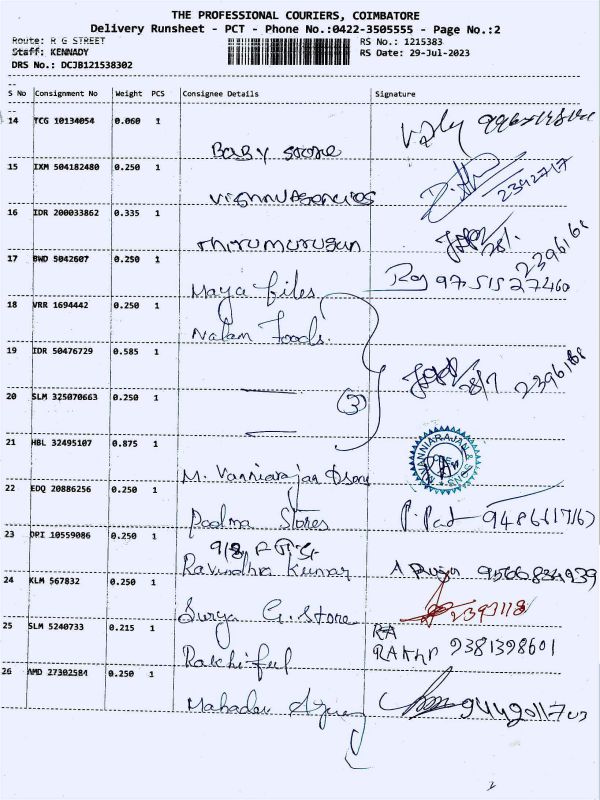 THE PROFESSIONAL COURIERS, COIMBATORE
Delivery Runsheet - PCT - Phone No.:0422-3505555 - Page No.:2
Route: R G STREET
Staff: KENNADY
DRS No.: DCJB121538302
RS No.: 1215383
RS Date: 29-Jul-2023
S No Consignment No Weight PCS Consignee Details Signature
14 TCG 10134054 0.060 1
Baby Store
15 IXM 504182480 0.250 1
Vishnu Agencies 2392717
16 IDR 200033862 0.335 1
Thirumurugan 28/
17 BWD 5042607 0.250 1 2396168
Maya files Raj 97 51527460
18 VRR 1694442 0.250 1
Nalam Foods.
19 IDR 50476729 0.585 1
28/7 2396168
20 SLM 325070663 0.250 1
3
21 HBL 32495107 0.875 1
M. VANNIARAJAN & SONS
M. Vanniarajan & Sons
22 EDQ 20886256 0.250 1
Padma Stores
23 DPI 10559086 0.250 1
Ravindhra Kumar 9566834939
24 KLM 567832 0.250 1
Surya G. Store 2393118
25 SLM 5240733 0.215 1 RA
Rakhiful RAKHI 9381398601
26 AMD 27302584 0.250 1
Mahadev